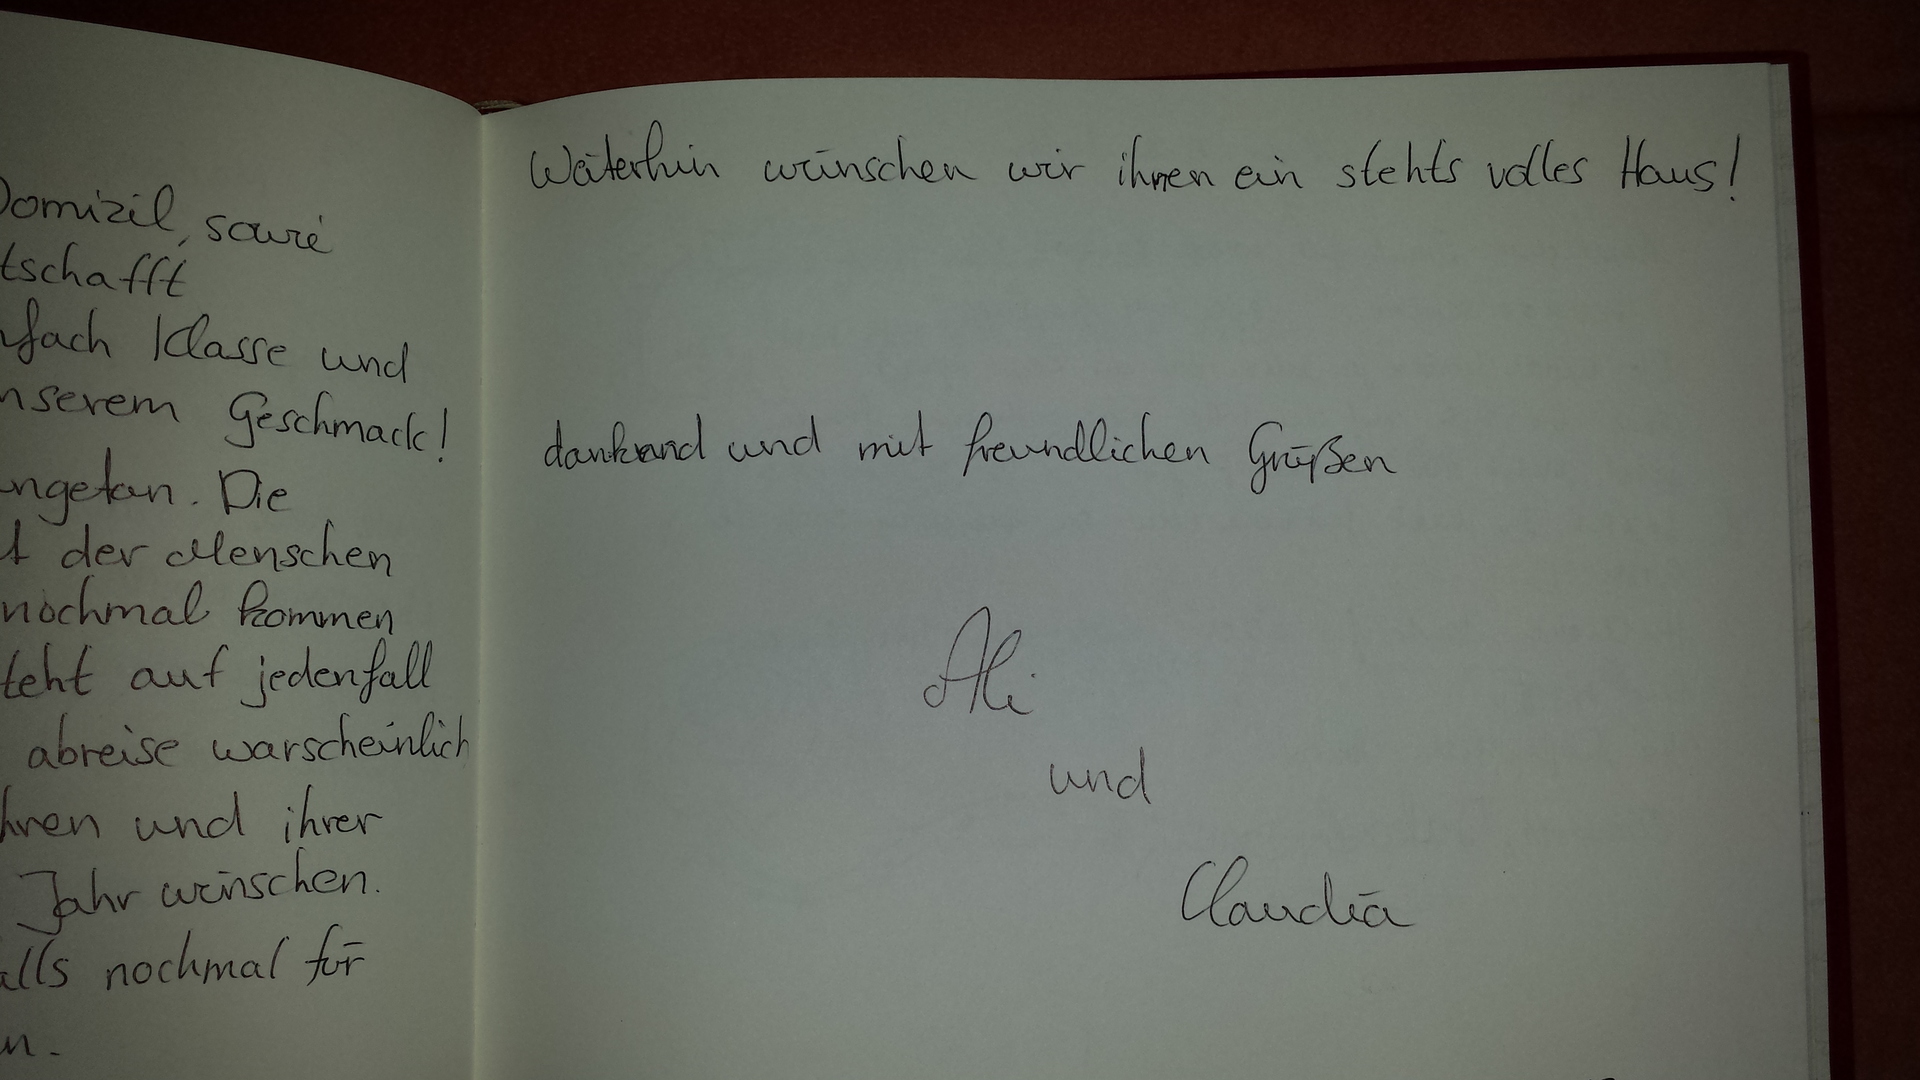 Domizil, sowie
tschafft
nfach Klasse und
nserem Geschmack!
angetan. Die
t der Menschen
nochmal kommen
teht auf jedenfall
abreise warscheinlich
hren und ihrer
Jahr wünschen.
alls nochmal für
n.
Weiterhin wünschen wir ihnen ein stehts volles Haus!
dankend und mit freundlichen Grüßen
Ali
und
Claudia